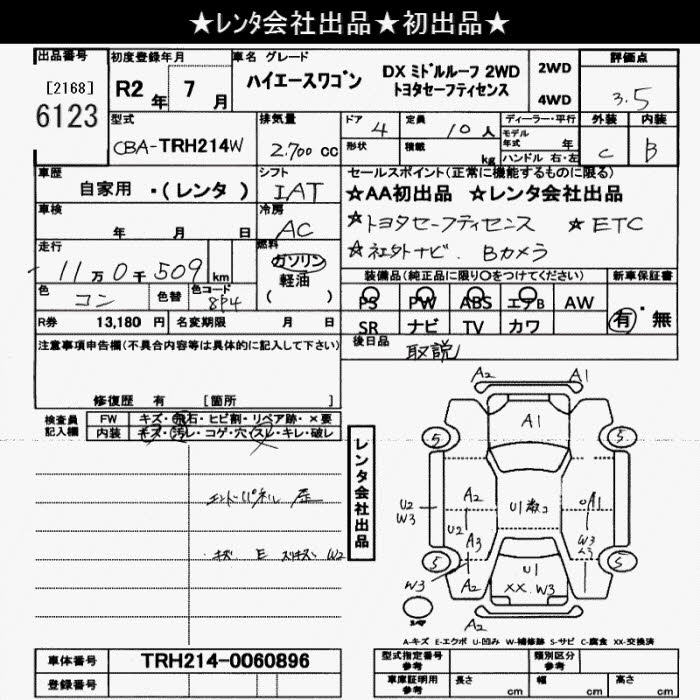 ★レンタ会社出品★初出品★
出品番号 初度登録年月 車名 グレード 評価点
[2168] R2年 7月 ハイエースワゴン DX ミドルルーフ 2WD 2WD
6123 トヨタセーフティセンス 4WD 3.5
型式 排気量 ドア 4 定員 10人 ディーラー・平行 外装 内装
CBA-TRH214W 2.700 cc 形状 積載 kg モデル年式 年 C B
ハンドル 右・左
車歴 シフト セールスポイント(正常に機能するものに限る)
自家用 ・(レンタ) IAT ★AA初出品 ★レンタ会社出品
車検 冷房 ☆トヨタセーフティセンス ☆ETC
年 月 日 AC ☆社外ナビ. Bカメラ
走行 燃料
11万0千509km ガソリン 装備品(純正品に限り〇をつけてください) 新車保証書
軽油
色 色替 色コード ( ) PS PW ABS エアB AW 有・無
コン 8P4
R券 13,180 円 名変期限 月 日 SR ナビ TV カワ
注意事項申告欄(不具合内容等は具体的に記入して下さい) 後日品 取説
修復歴 有 [箇所 ]
検査員記入欄 FW キズ・飛石・ヒビ割・リペア跡・×要
内装 キズ・汚レ・コゲ・穴・スレ・キレ・破レ
レンタ会社出品
A2 A1
A1
5 5
U2 W3 A2 U1数コ A1
U2 W3
A3
5 5
W3 A2 U1
XX.W3
A2
A-キズ E-エクボ U-凹み W-補修跡 S-サビ C-腐食 XX-交換済
車体番号 TRH214-0060896 型式指定番号 参考 類別区分 参考
登録番号 車庫証明用 参考 長さ cm 幅 cm 高さ cm